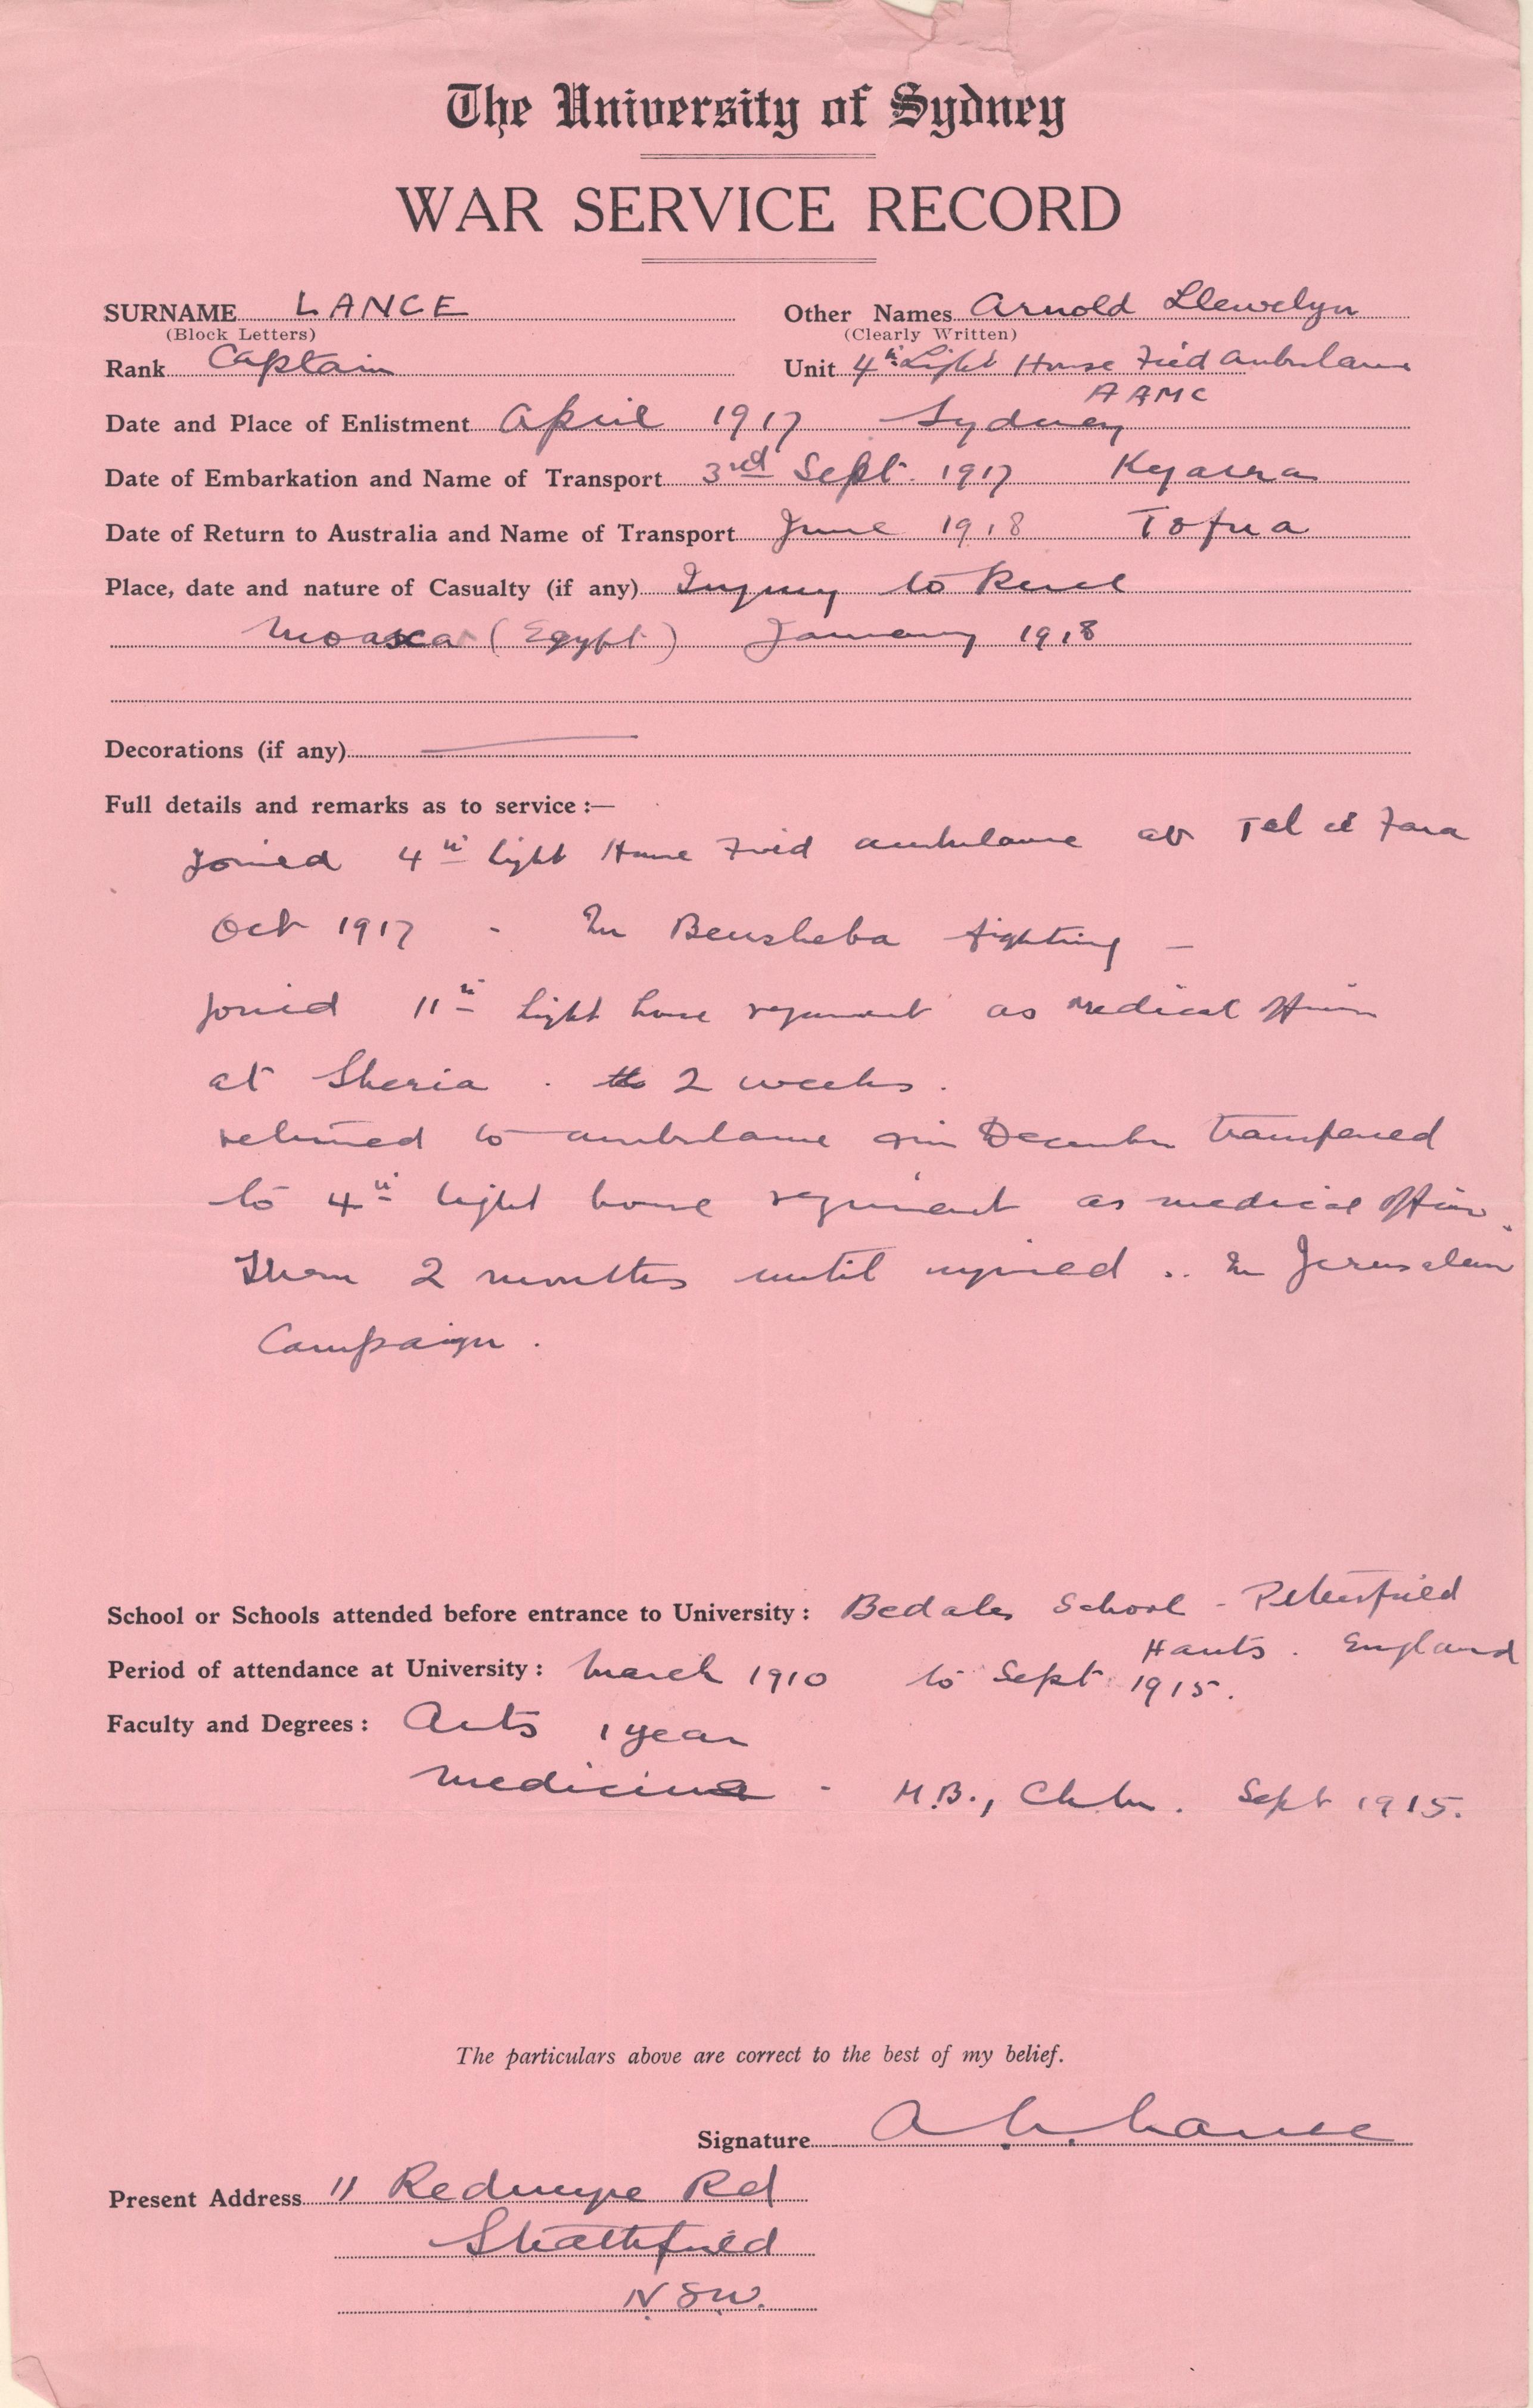 The University of Sydney
WAR SERVICE RECORD
SURNAME LANCE Other Names Arnold Llewelyn
(Block Letters) (Clearly Written)
Rank Captain Unit 4th Light Horse Field Ambulance
AAMC
Date and Place of Enlistment April 1917 Sydney
Date of Embarkation and Name of Transport 3rd Sept. 1917 Kyarra
Date of Return to Australia and Name of Transport June 1918 Tofua
Place, date and nature of Casualty (if any) Injury to Knee
Moascar (Egypt) January 1918
Decorations (if any)
Full details and remarks as to service :—
Joined 4th Light Horse Field ambulance at Tel el Fara
Oct 1917 - In Beersheba fighting -
joined 11th Light horse regiment as medical officer
at Sheria . 2 weeks.
returned to ambulance in December transfered
to 4th light horse regiment as medical officer.
There 2 months until injured .. In Jerusalem
Campaign .
School or Schools attended before entrance to University : Bedales School - Petersfield
Hants . England
Period of attendance at University : March 1910 to Sept 1915.
Faculty and Degrees : Arts 1 year
medicine - M.B., Ch.M. Sept 1915.
The particulars above are correct to the best of my belief.
Signature A. L. Lance
Present Address 11 Redmyre Rd
Strathfield
N.S.W.